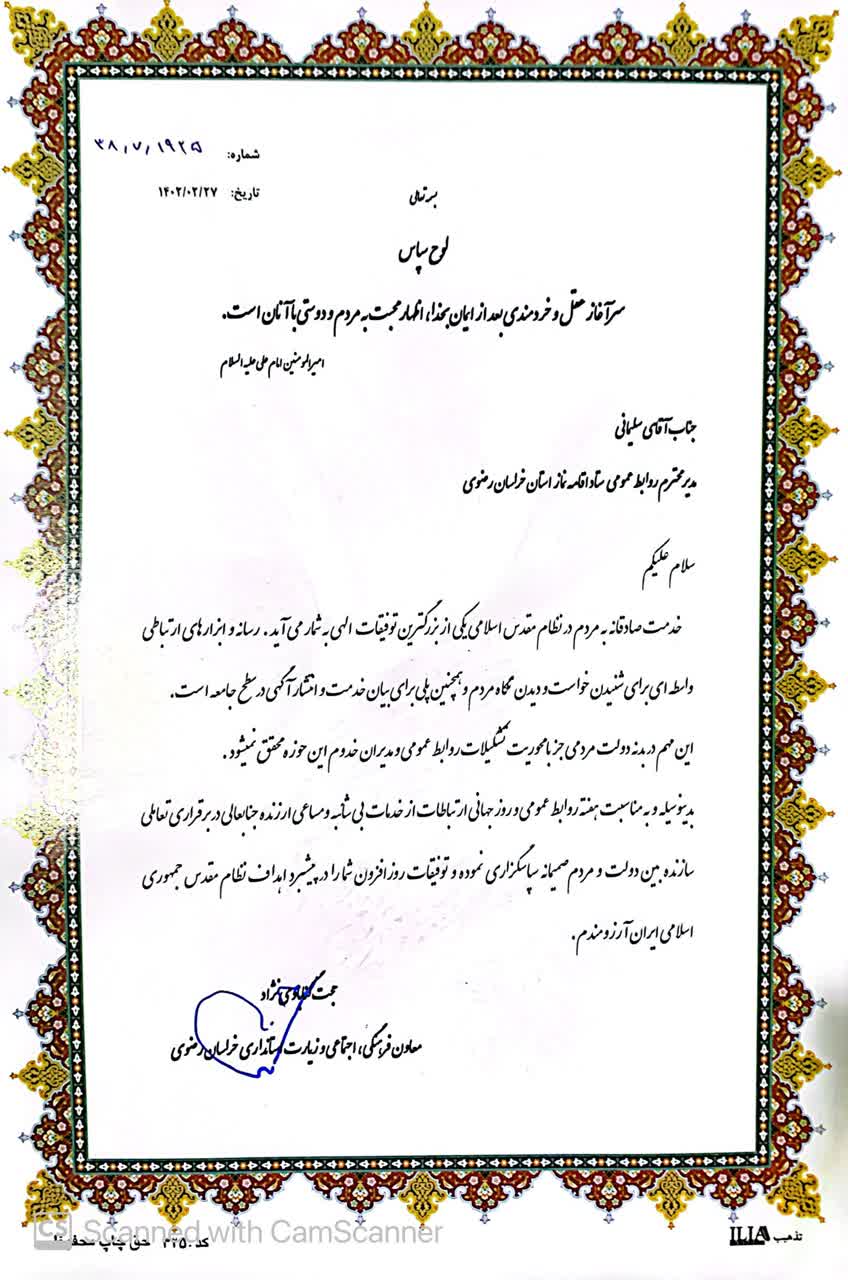 شماره: ۳۸/۷/۱۹۲۵
تاریخ: ۱۴۰۲/۰۲/۲۷
بسمه تعالی
لوح سپاس
سرآغاز عقل و خردمندی بعد از ایمان بخدا، اظهار محبت به مردم و دوستی با آنان است.
امیرالمومنین امام علی علیه السلام
جناب آقای سلیمانی
مدیر محترم روابط عمومی ستاد اقامه نماز استان خراسان رضوی
سلام علیکم
خدمت صادقانه به مردم در نظام مقدس اسلامی یکی از بزرگترین توفیقات الهی به شمار می آید . رسانه و ابزارهای ارتباطی
واسطه ای برای شنیدن خواست و دیدن نگاه مردم و همچنین پلی برای بیان خدمت و انتشار آگهی در سطح جامعه است.
این مهم در بدنه دولت مردمی جز با محوریت تشکیلات روابط عمومی و مدیران خدوم این حوزه محقق نمیشود .
بدینوسیله و به مناسبت هفته روابط عمومی و روز جهانی ارتباطات از خدمات بی شائبه و مساعی ارزنده جنابعالی در برقراری تعاملی
سازنده بین دولت و مردم صمیمانه سپاسگزاری نموده و توفیقات روز افزون شما را در پیشبرد اهداف نظام مقدس جمهوری
اسلامی ایران آرزومندم.
حجت گنابادی نژاد
معاون فرهنگی، اجتماعی و زیارت استانداری خراسان رضوی
تذهیب ILIA
کد ۴۲۵۰ حق چاپ محفوظ
CS Scanned with CamScanner